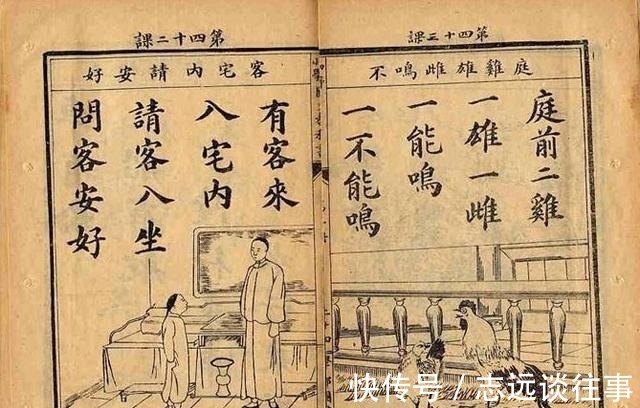 第四十三課
庭雞雄雌鳴不
庭前二雞
一雄一雌
一能鳴
一不能鳴
第四十二課
客宅內請安好
有客來
入宅內
請客入坐
問客安好
快传号/志远谈往事